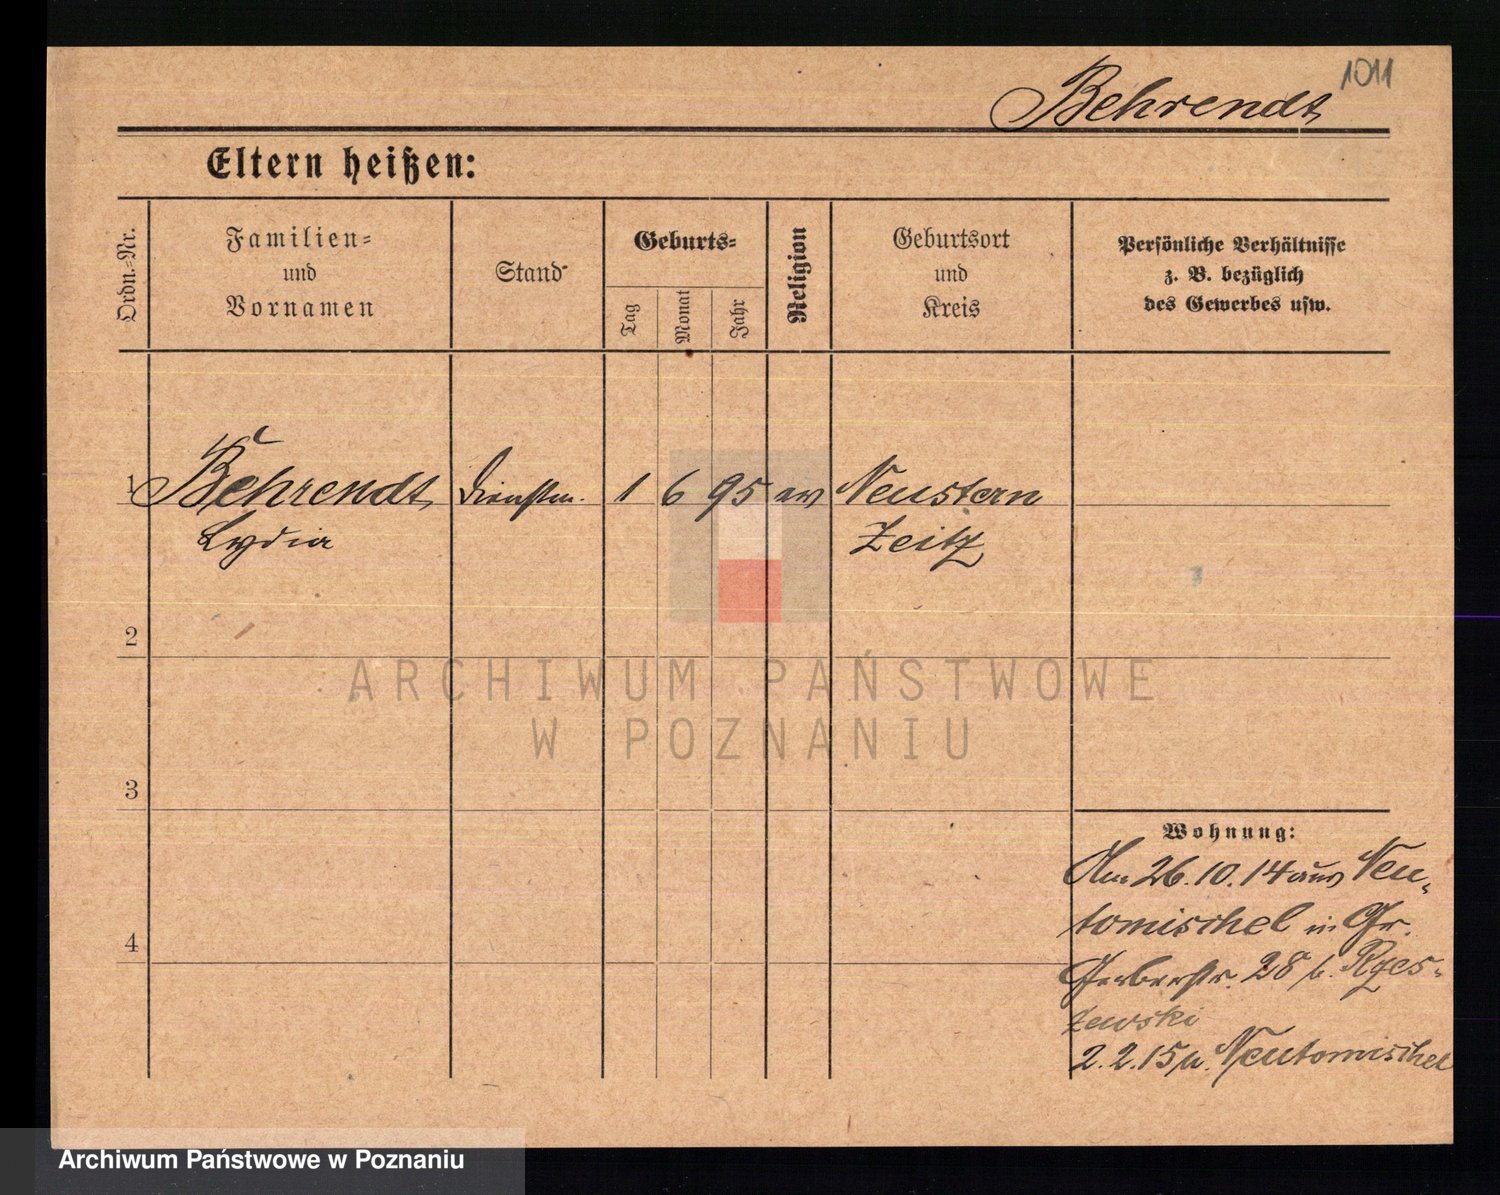 1011
Behrendt
Eltern heißen:
Ordn.=Nr.
Familien=
und
Vornamen
Stand
Geburts=
Tag
Monat
Jahr
Religion
Geburtsort
und
Kreis
Persönliche Verhältnisse
z. B. bezüglich
des Gewerbes usw.
1 Behrendt Dienstm. 1 6 95 ev Neustern
Lydia Zeitz
2
3
4
Wohnung:
Am 26.10.14 aus Neu-
tomischel in Gr.
Gerberstr. 28 b. Ryes-
zewski
2.2.15 n. Neutomischel
ARCHIWUM PAŃSTWOWE
W POZNANIU
Archiwum Państwowe w Poznaniu